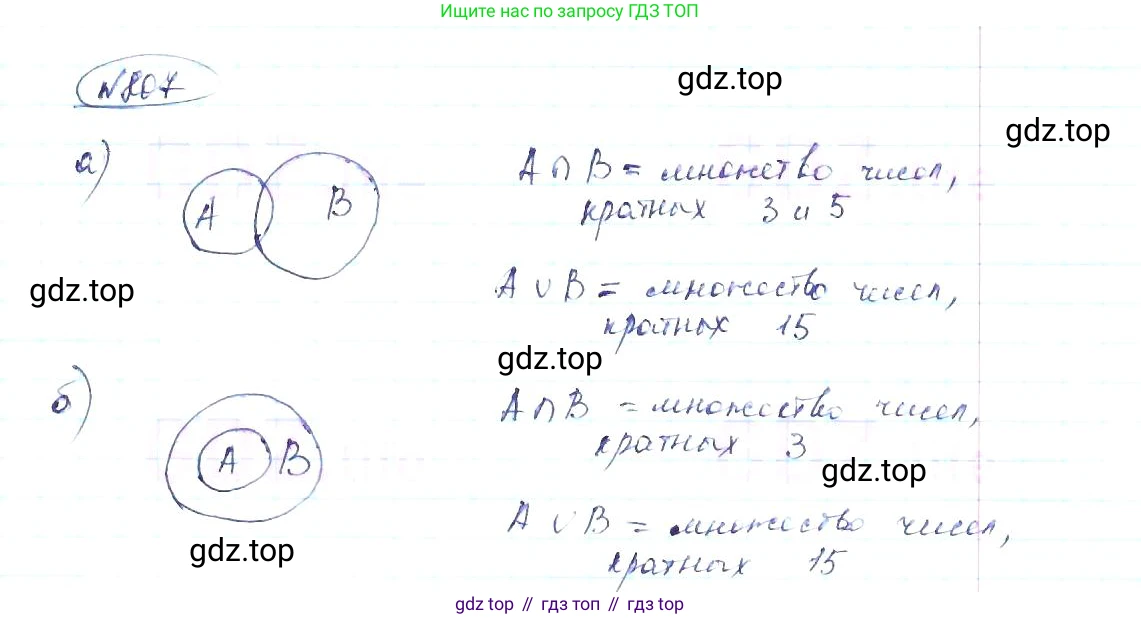 Ищите нас по запросу ГДЗ ТОП
№807
gdz.top
gdz.top
а)
A
B
A ∩ B = множество чисел,
кратных 3 и 5
gdz.top
A ∪ B = множество чисел,
кратных 15
gdz.top
б)
A
B
A ∩ B = множество чисел,
кратных 3
gdz.top
A ∪ B = множество чисел,
кратных 15
gdz.top
gdz top // гдз топ // гдз top